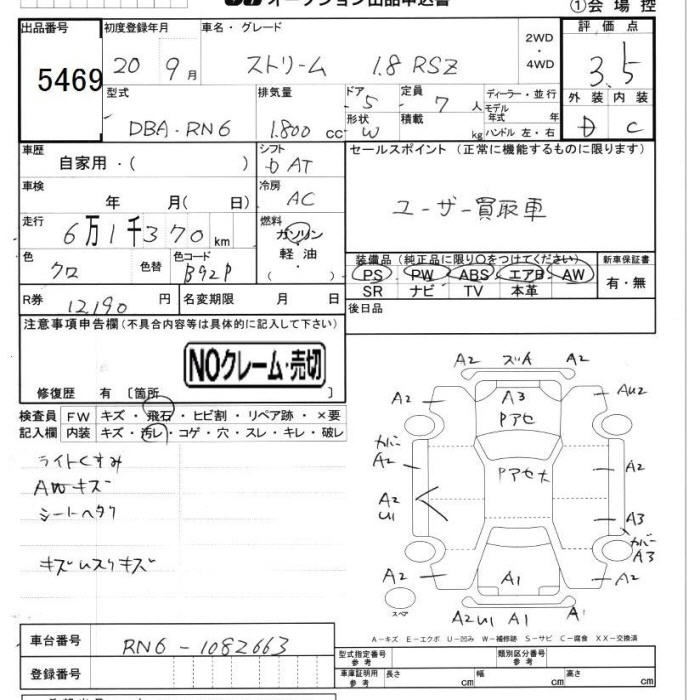 オークション出品申込書
①会場控
出品番号 初度登録年月 車名・グレード 2WD・4WD 評価点
5469 20 9月 ストリーム 1.8 RSZ 3.5
型式 排気量 ドア 定員 ディーラー・並行 外装 内装
DBA-RN6 1.800 cc 5 7人 モデル年式 年 D C
形状 W 積載 kg ハンドル 左・右
車歴 シフト セールスポイント (正常に機能するものに限ります)
自家用・( ) D AT
車検 冷房 ユーザー買取車
年 月( 日) AC
走行 燃料
6万1千370km ガソリン
軽油
・
( )
色 色替 色コード 装備品 (純正品に限り○をつけてください) 新車保証書
クロ B92P PS PW ABS エアB AW 有・無
SR ナビ TV 本革
R券 12190円 名変期限 月 日 後日品
注意事項申告欄(不具合内容等は具体的に記入して下さい)
NOクレーム・売切
修復歴 有 〔箇所 〕
検査員 FW キズ・飛石・ヒビ割・リペア跡・×要
記入欄 内装 キズ・汚レ・コゲ・穴・スレ・キレ・破レ
ライトくすみ
AWキズ
シートヘタリ
A2 A2
A2 A3 AU2
Pアセ
カバー
A2 Pアセ大 A2
A2
U1 A3
カバー
A3
A2 A1 A2
スペア
A2U1 A1 A1
A-キズ E-エクボ U-凹み W-補修跡 S-サビ C-腐食 XX-交換済
車台番号 RN6-1082663
登録番号
型式指定番号 参考 類別区分番号 参考
車庫証明用 参考 長さ cm 幅 cm 高さ cm